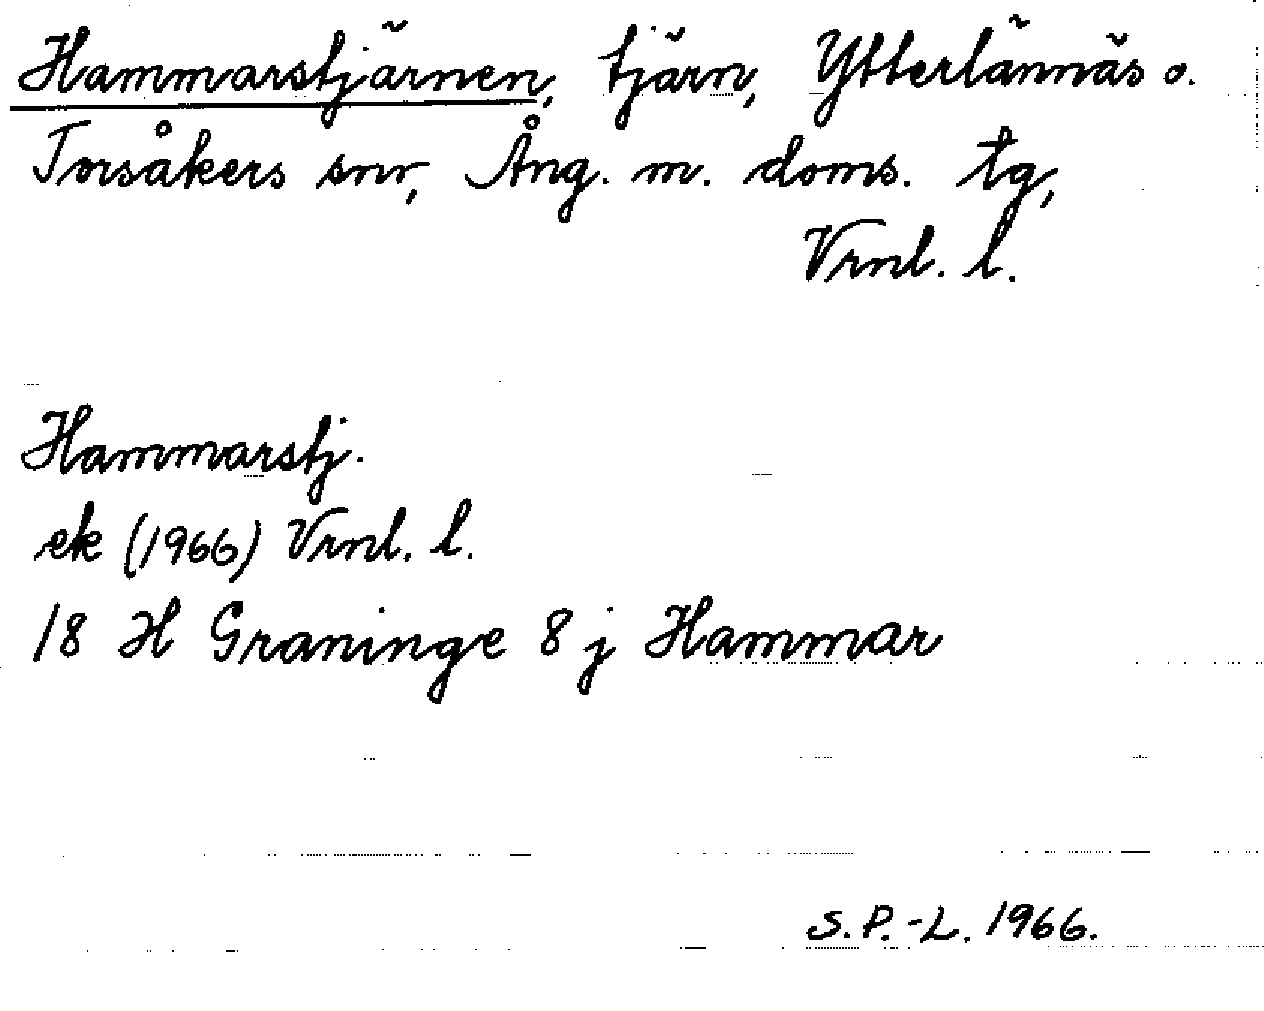 Hammarstjärnen, tjärn, Ytterlännäs o.
Torsåkers snr, Ång. m. doms. tg,
Vrnl. l.
Hammarstj.
ek (1966) Vrnl. l.
18 H Graninge 8 j Hammar
S. P.-L. 1966.